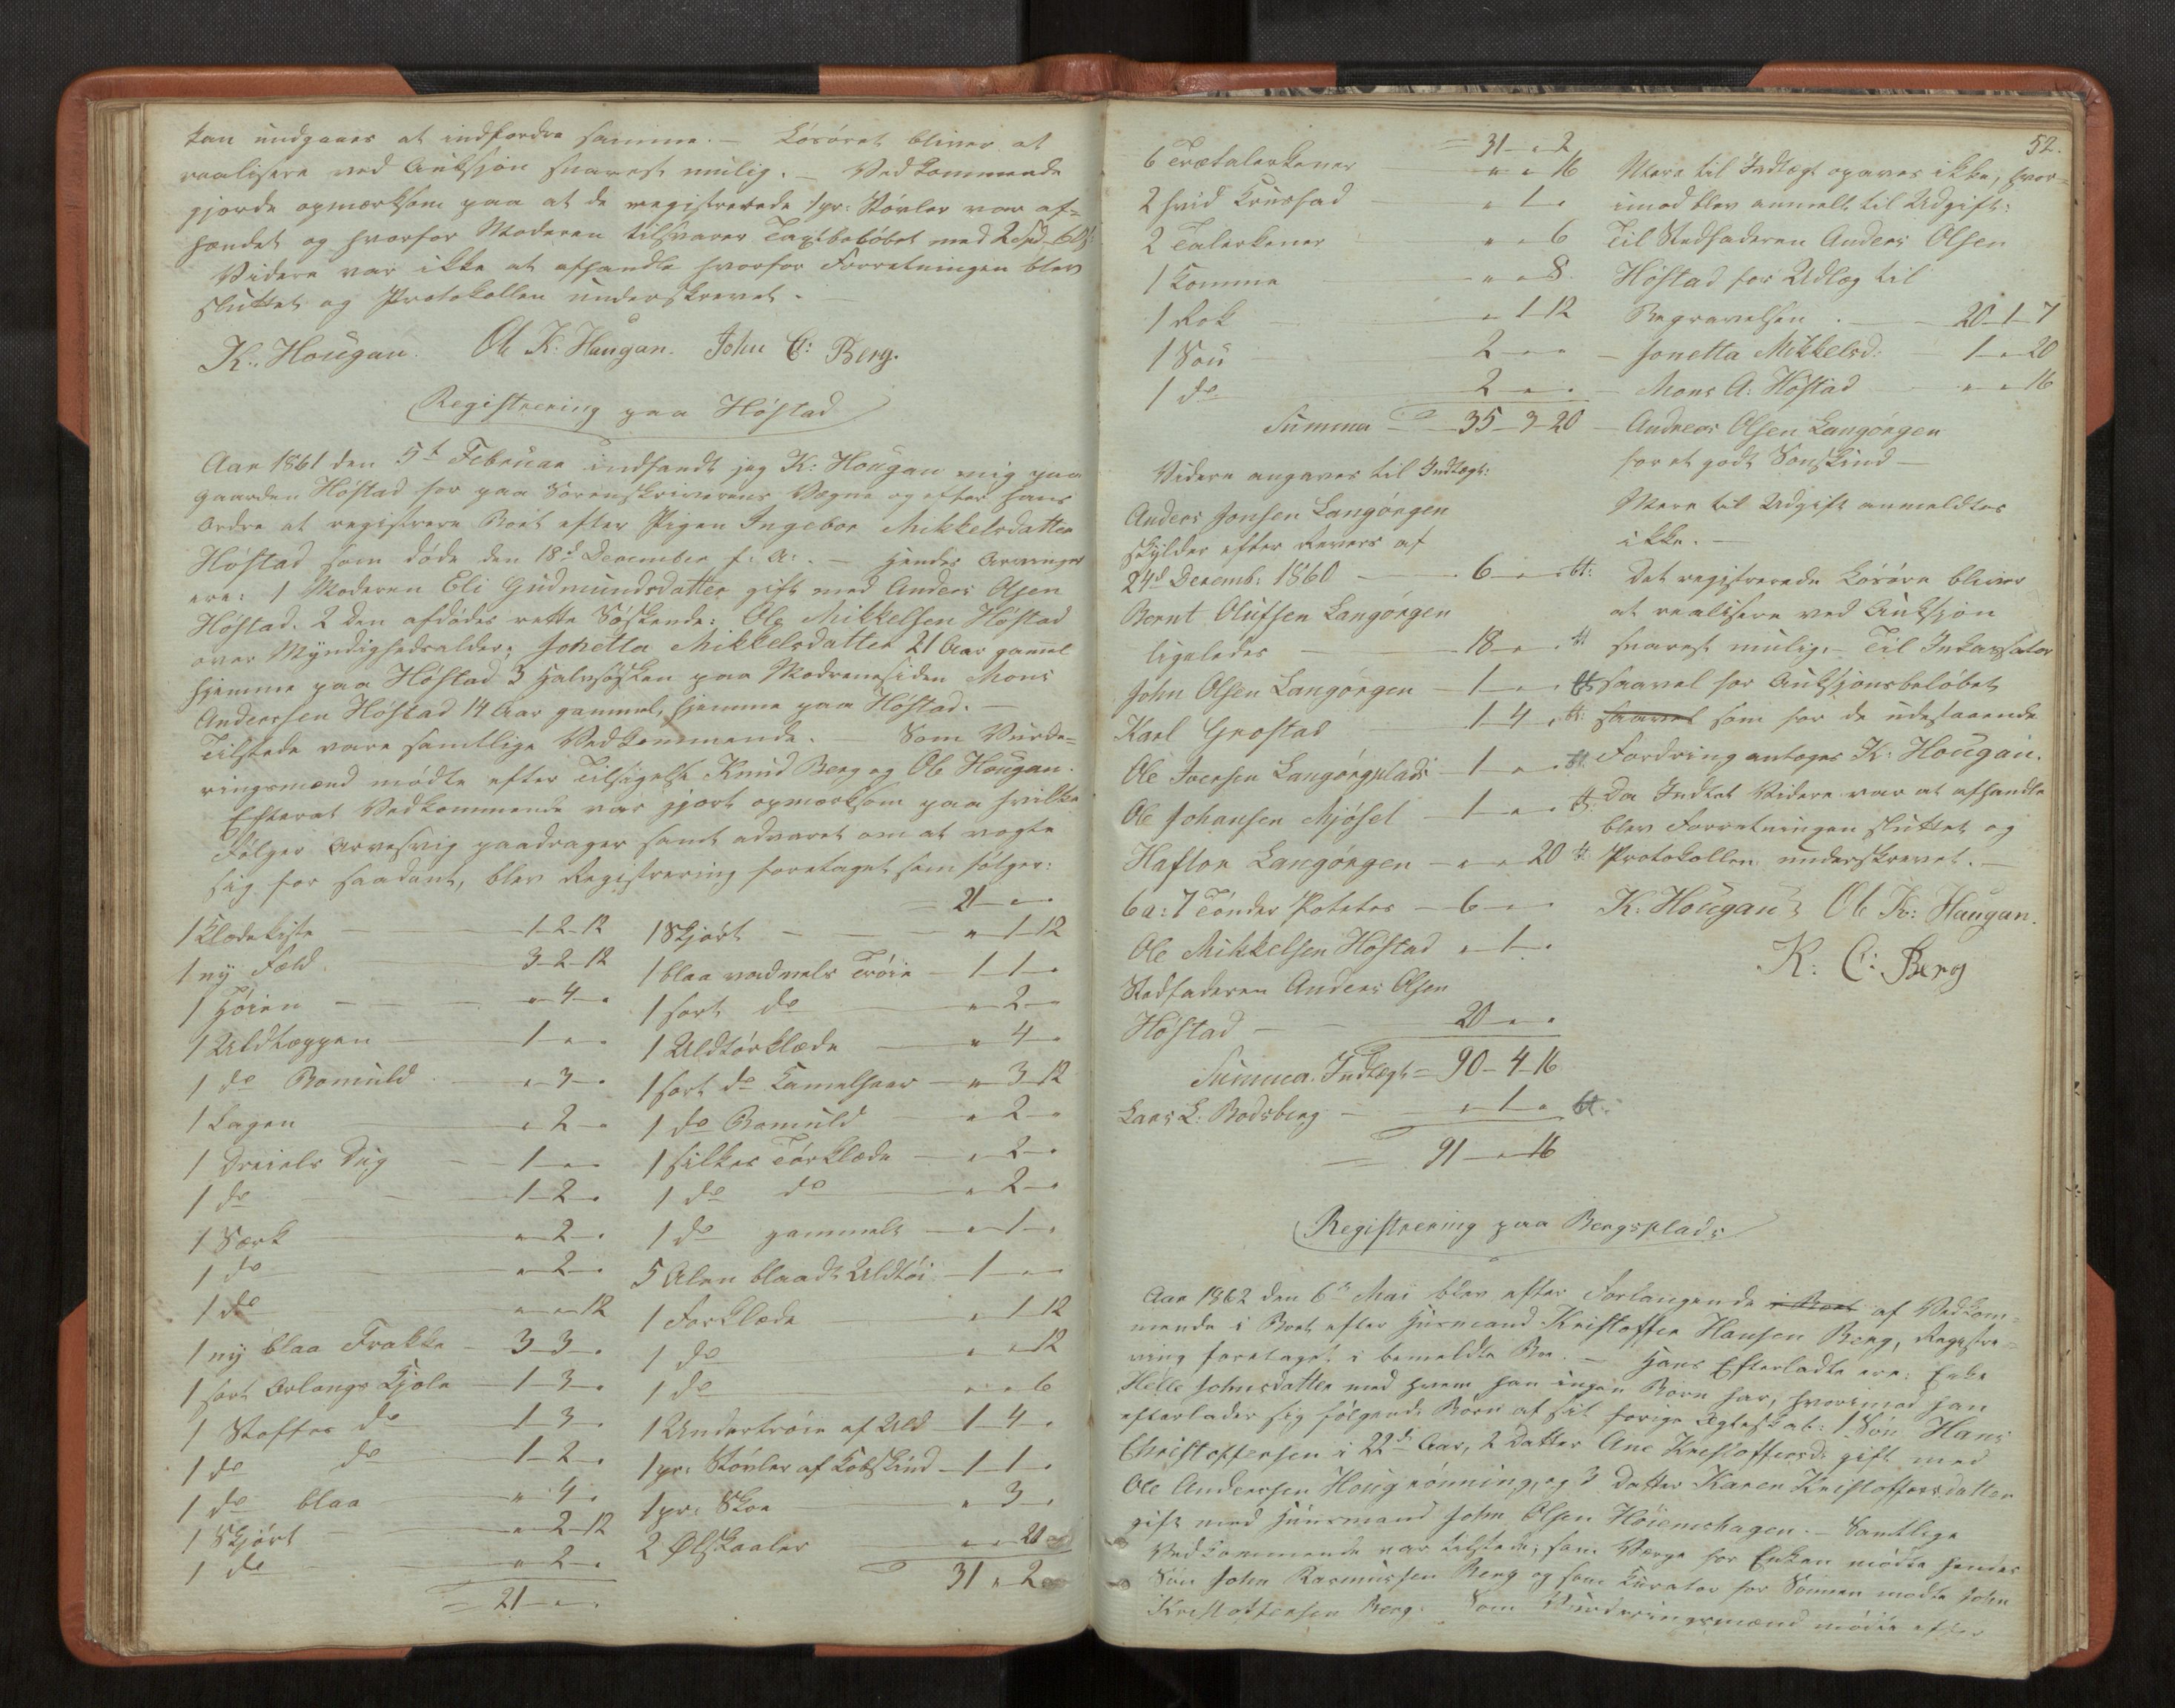 kan undgaaes at indfordre samme. — Løsøret bliver at
realisere ved Auksjon snarest mulig. — Vedkommende
gjorde opmærksom paa at de registrerede 1 pr: Støvler var af-
hændet og hvorfor Moderen tilsvarer Taxtbeløbet med 2 Spd
Videre var ikke at afhandle hvorfor Forretningen blev
sluttet og Protokollen underskrevet.
K. Hougan. Ole K. Haugan. John C: Berg.
Registrering paa Höstad
Aar 1861 den 5t Februar indfandt jeg K: Hougan mig paa
Gaarden Höstad for paa Sorenskriverens Vegne og efter hans
Ordre at registrere Boet efter Pigen Ingebor Mikkelsdatter
Höstad som døde den 18d December f: A:. — Hendes Arvinger
ere: 1 Moderen Eli Gudmundsdatter gift med Anders Olsen
Höstad. 2 den afdødes rette Søskende: Ole Mikkelsen Höstad
over Myndighedsalder, Jonetta Mikkelsdatter 21 Aar gammel
hjemme paa Höstad 3 Halvsøsken paa Modrenesiden Mons
Anderssen Höstad 14 Aar gammel, hjemme paa Höstad. —
Tilstede vare samtlige Vedkommende. — Som Vurde-
ringsmænd mødte efter Tilsigelse Knud Berg og Ole Hougan.
Efterat Vedkommende var gjort opmærksom paa hvilke
Følger Arvesvig paadrager samt advaret om at vogte
sig for saadant, blev Registrering foretaget som følger:
1 Klædekiste — 1-2-12
1 ny Fæld — 3-2-12
1 Høien — " 4 "
1 Uldtæppen — 1 " "
1 do Bomuld — " 3 "
1 Lagen — " 2 "
1 Dreiels Dug — 1 " "
1 do — 1-2 "
1 Særk — " 2 "
1 do — " 2 "
1 do — " " 12
1 ny blaa Frakke — 3-3 "
1 sort Orlangs Kjole — 1-3 "
1 Stoffes do — 1-3 "
1 do do — 1-2 "
1 do blaa — " 4 "
1 Skjørt — " 2-12
1 do — " 2 "
= 21 " "
= 21 " "
1 Skjørt — " 1-12
1 blaa vadmels Trøie — 1-1 "
1 sort do — " 2 "
1 Uldtørklæde — " 4 "
1 sort do Kamelhaar — " 3-12
1 do Bomuld — " 2 "
1 silkes Tørklæde — " 2 "
1 do do — " 2 "
1 do gammelt — " 1 "
5 Alen blaadt Uldtøi — 1 " "
1 Forklæde — " 1-12
1 do — " " 12
1 do — " " 6
1 Undertrøie af Uld — 1-4 "
1 pr: Støvler af Kobskind — 1-1 "
1 pr: Skoe — " 3 "
2 Ølskaaler — " " 20
31 " 2
52.
= 31 " 2
6 Trætalerkener — " " 16
2 hvid Krusfad — " 1 "
2 Talerkener — " " 6
1 Komme — " " 8.
1 Rok — " 1-12
1 Sou — 2 " "
1 do — 2 " "
Summa = 35-3-20
Videre angaves til Indtægt:
Anders Jonsen Langörgen
skylder efter Revers af
24d Decemb: 1860 — 6 " "
Bernt Olufsen Langörgen
ligeledes — 18 " "
John Olsen Langörgen — 1 " "
Karl Grostad — 1-4 "
Ole Iversen Langörgplads — 1 " "
Ole Johansen Mjösel — 1 " "
Haftor Langörgen — " " 20
6 a: 7 Tønder Potetes — 6 " "
Ole Mikkelsen Höstad " 1 "
Stedfaderen Anders Olsen
Höstad — 20 " "
Summa Indtægt = 90-4-16
Lars L: Rodsberg — " 1 "
= 91 " 16
Mere til Indtægt opgaves ikke, hvor-
imod blev anmelt til Udgift:
Til Stedfaderen Anders Olsen
Höstad for Udlæg til
Begravelsen. — 20-1-7
— Jonetta Mikkelsd: — 1 " 20
— Mons A: Höstad — " " 16
— Andreas Olsen Langörgen
for et godt Soueskind —
Mere til Udgift anmeldtes
ikke. —
Det registrerede Løsøre bliver
at realisere ved Auksjon
snarest mulig. — Til Inkassator
saavel for Auksjonsbeløbet
saavel som for de udestaaende
Fordring antoges K: Hougan.
Da Indtet Videre var at afhandle
blev Forretningen sluttet og
Protokollen underskrevet. —
K: Hougan Ole K: Haugan.
K: C: Berg
Registrering paa Bergsplads
Aar 1862 den 6te Mai blev efter Forlangende i Boet af Vedkom-
mende i Boet efter Husmand Kristoffer Hansen Berg, Registre-
ring foretaget i bemeldte Bo. — Hans Efterladte ere: Enke
Helle Johnsdatter med hvem han ingen Børn har, hvorimod han
efterlader sig følgende Børn af sit forige Ægteskab: 1 Søn Hans
Christoffersen i 22de Aar, 2 Datter Ane Kristoffersd: gift med
Ole Anderssen Hougrönning, og 3 Datter Karen Kristoffersdatter
gift med Huusmand John Olsen Höiemshagen. — Samtlige
Vedkommende var tilstede, som Værge for Enken mødte hendes
Søn John Rasmussen Berg og som Kurator for Sønnen mødte John
Kristoffersen Berg. Som Vurderingsmænd mødte efter